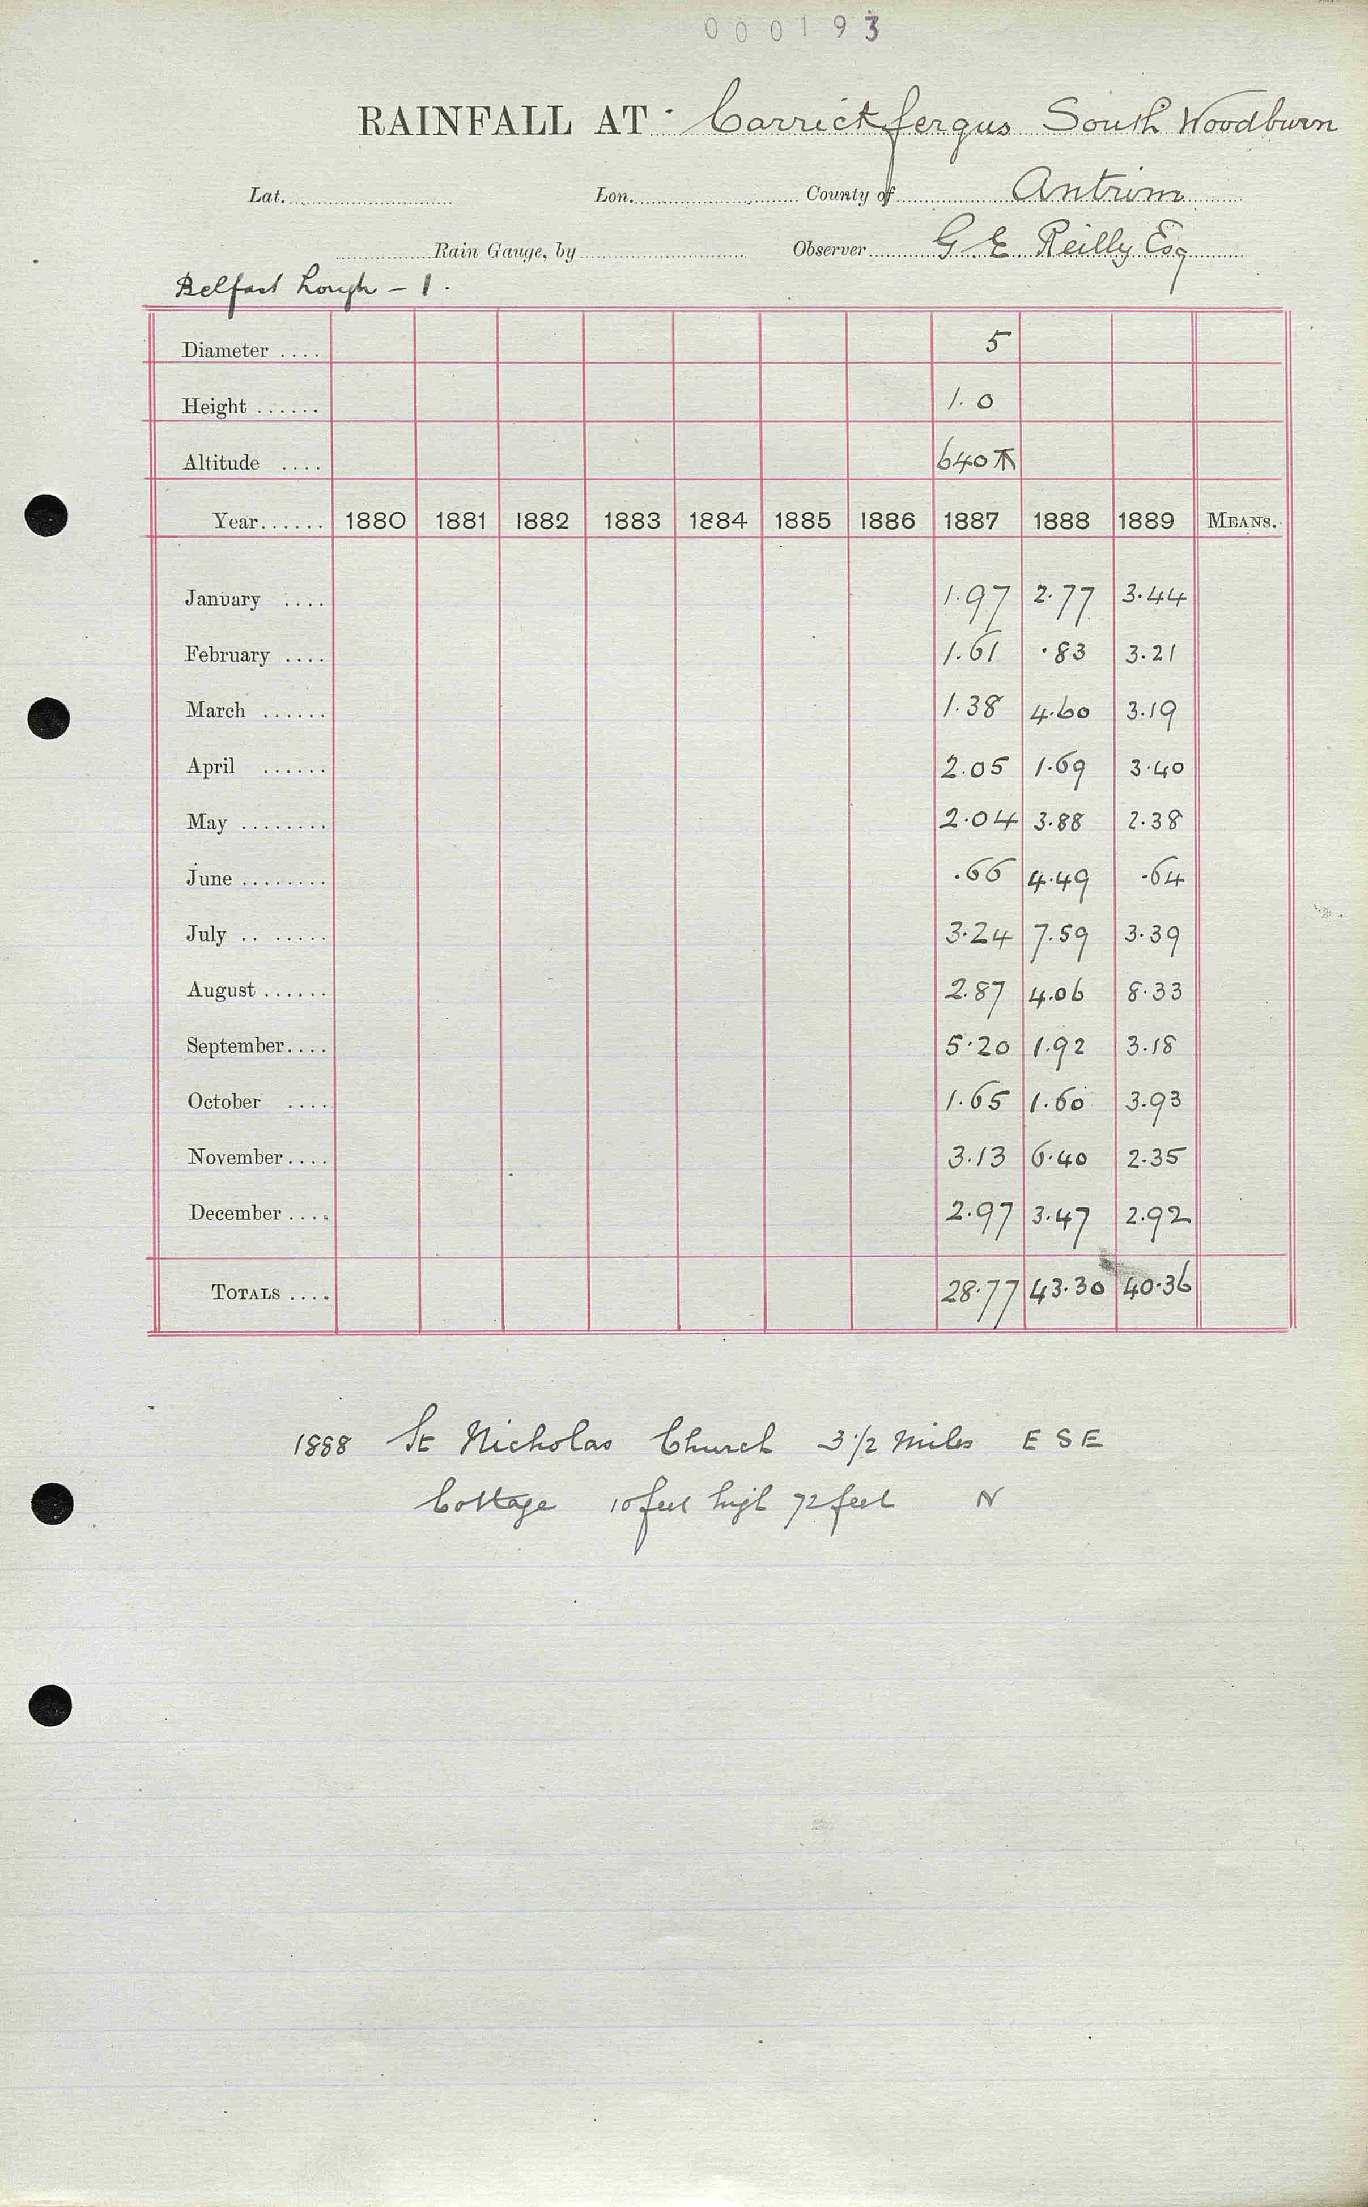 000193
RAINFALL AT Carrickfergus South Woodburn
Lat. Lon. County of Antrim
Rain Gauge, by Observer G. E. Reilly Esq
Belfast Lough - 1.
Diameter .... 5
Height ...... 1.0
Altitude .... 640
Year...... 1880 1881 1882 1883 1884 1885 1886 1887 1888 1889 MEANS.
January .... 1.97 2.77 3.44
February .... 1.61 .83 3.21
March ...... 1.38 4.60 3.19
April ...... 2.05 1.69 3.40
May ........ 2.04 3.88 2.38
June ........ .66 4.49 .64
July .. ...... 3.24 7.59 3.39
August ...... 2.87 4.06 8.33
September.... 5.20 1.92 3.18
October .... 1.65 1.60 3.93
November.... 3.13 6.40 2.35
December.... 2.97 3.47 2.92
TOTALS .... 28.77 43.30 40.36
1888 St Nicholas Church 3 1/2 miles E S E
Cottage 10 feet high 72 feet N